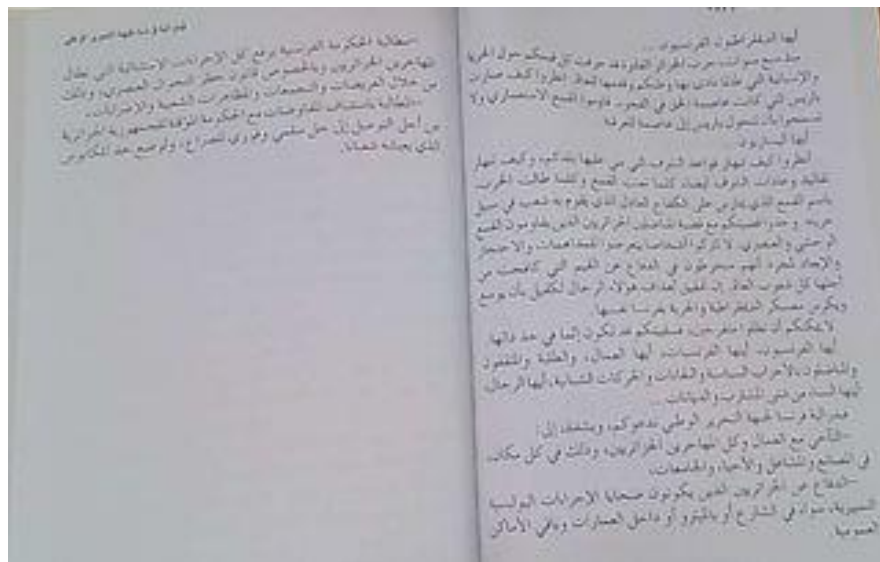 أيها الديمقراطيون الفرنسيون ...
منذ سبع سنوات، حرب الجزائر القذرة قد حرفت كل قيمكم حول الحرية
والإنسانية التي طالما نادى بها وطنكم وقدمها للعالم. انظروا كيف صارت
باريس التي كانت عاصمة الحق في اللجوء. قاوموا القمع الاستعماري ولا
تسمحوا بأن تتحول باريس إلى عاصمة للعرقية
أيها اليساريون
أنظروا كيف تنهار قواعد الشرف التي بني عليها بلدكم، وكيف تنهار
باسم القمع الذي يمارس على الكفاح العادل الذي يقوم به شعب في سبيل
حريته. وحدوا قضيتكم مع قضية المناضلين الجزائريين الذين يقاومون القمع
الوحشي والعنصري. لا تتركوا أشخاصا يتعرضوا للمداهمات والاحتجاز
والإبعاد لمجرد أنهم منخرطون في الدفاع عن القيم التي كافحت من
أجلها كل شعوب العالم. إن تحقيق أهداف هؤلاء الرجال لكفيل بأن يوسع
ويكرس معسكر الديمقراطية والحرية بفرنسا نفسها.
لا يمكنكم أن تظلوا متفرجين، فسلبيتكم قد تكون إثما في حد ذاتها.
أيها الفرنسيون، أيها الفرنسيات، أيها العمال، والطلبة والمثقفون
والمناضلون بالأحزاب السياسية والنقابات والحركات الشبانية، أيها الرجال،
أيها النساء من شتى المشارب والديانات ...
فيدرالية فرنسا لجبهة التحرير الوطني تدعوكم، وبشغف إلى:
-التآخي مع العمال وكل المهاجرين الجزائريين، وذلك في كل مكان،
في المصانع والمشاغل والأحياء والجامعات،
-الدفاع عن الجزائريين الذين يكونون ضحايا الإجراءات البوليسية
التمييزية، سواء في الشارع أو بالميترو أو داخل العمارات وباقي الأماكن
العمومية.
-مطالبة الحكومة الفرنسية برفع كل الإجراءات الاستثنائية التي تطال
المهاجرين الجزائريين وبالخصوص قانون حظر التجوال العنصري، وذلك
من خلال العريضات والتجمعات والمظاهرات الشعبية والإضرابات،
-المطالبة باستئناف المفاوضات مع الحكومة المؤقتة للجمهورية الجزائرية
من أجل التوصل إلى حل سلمي وفوري للصراع، ولوضع حد للكابوس
الذي يعيشه شعبانا.